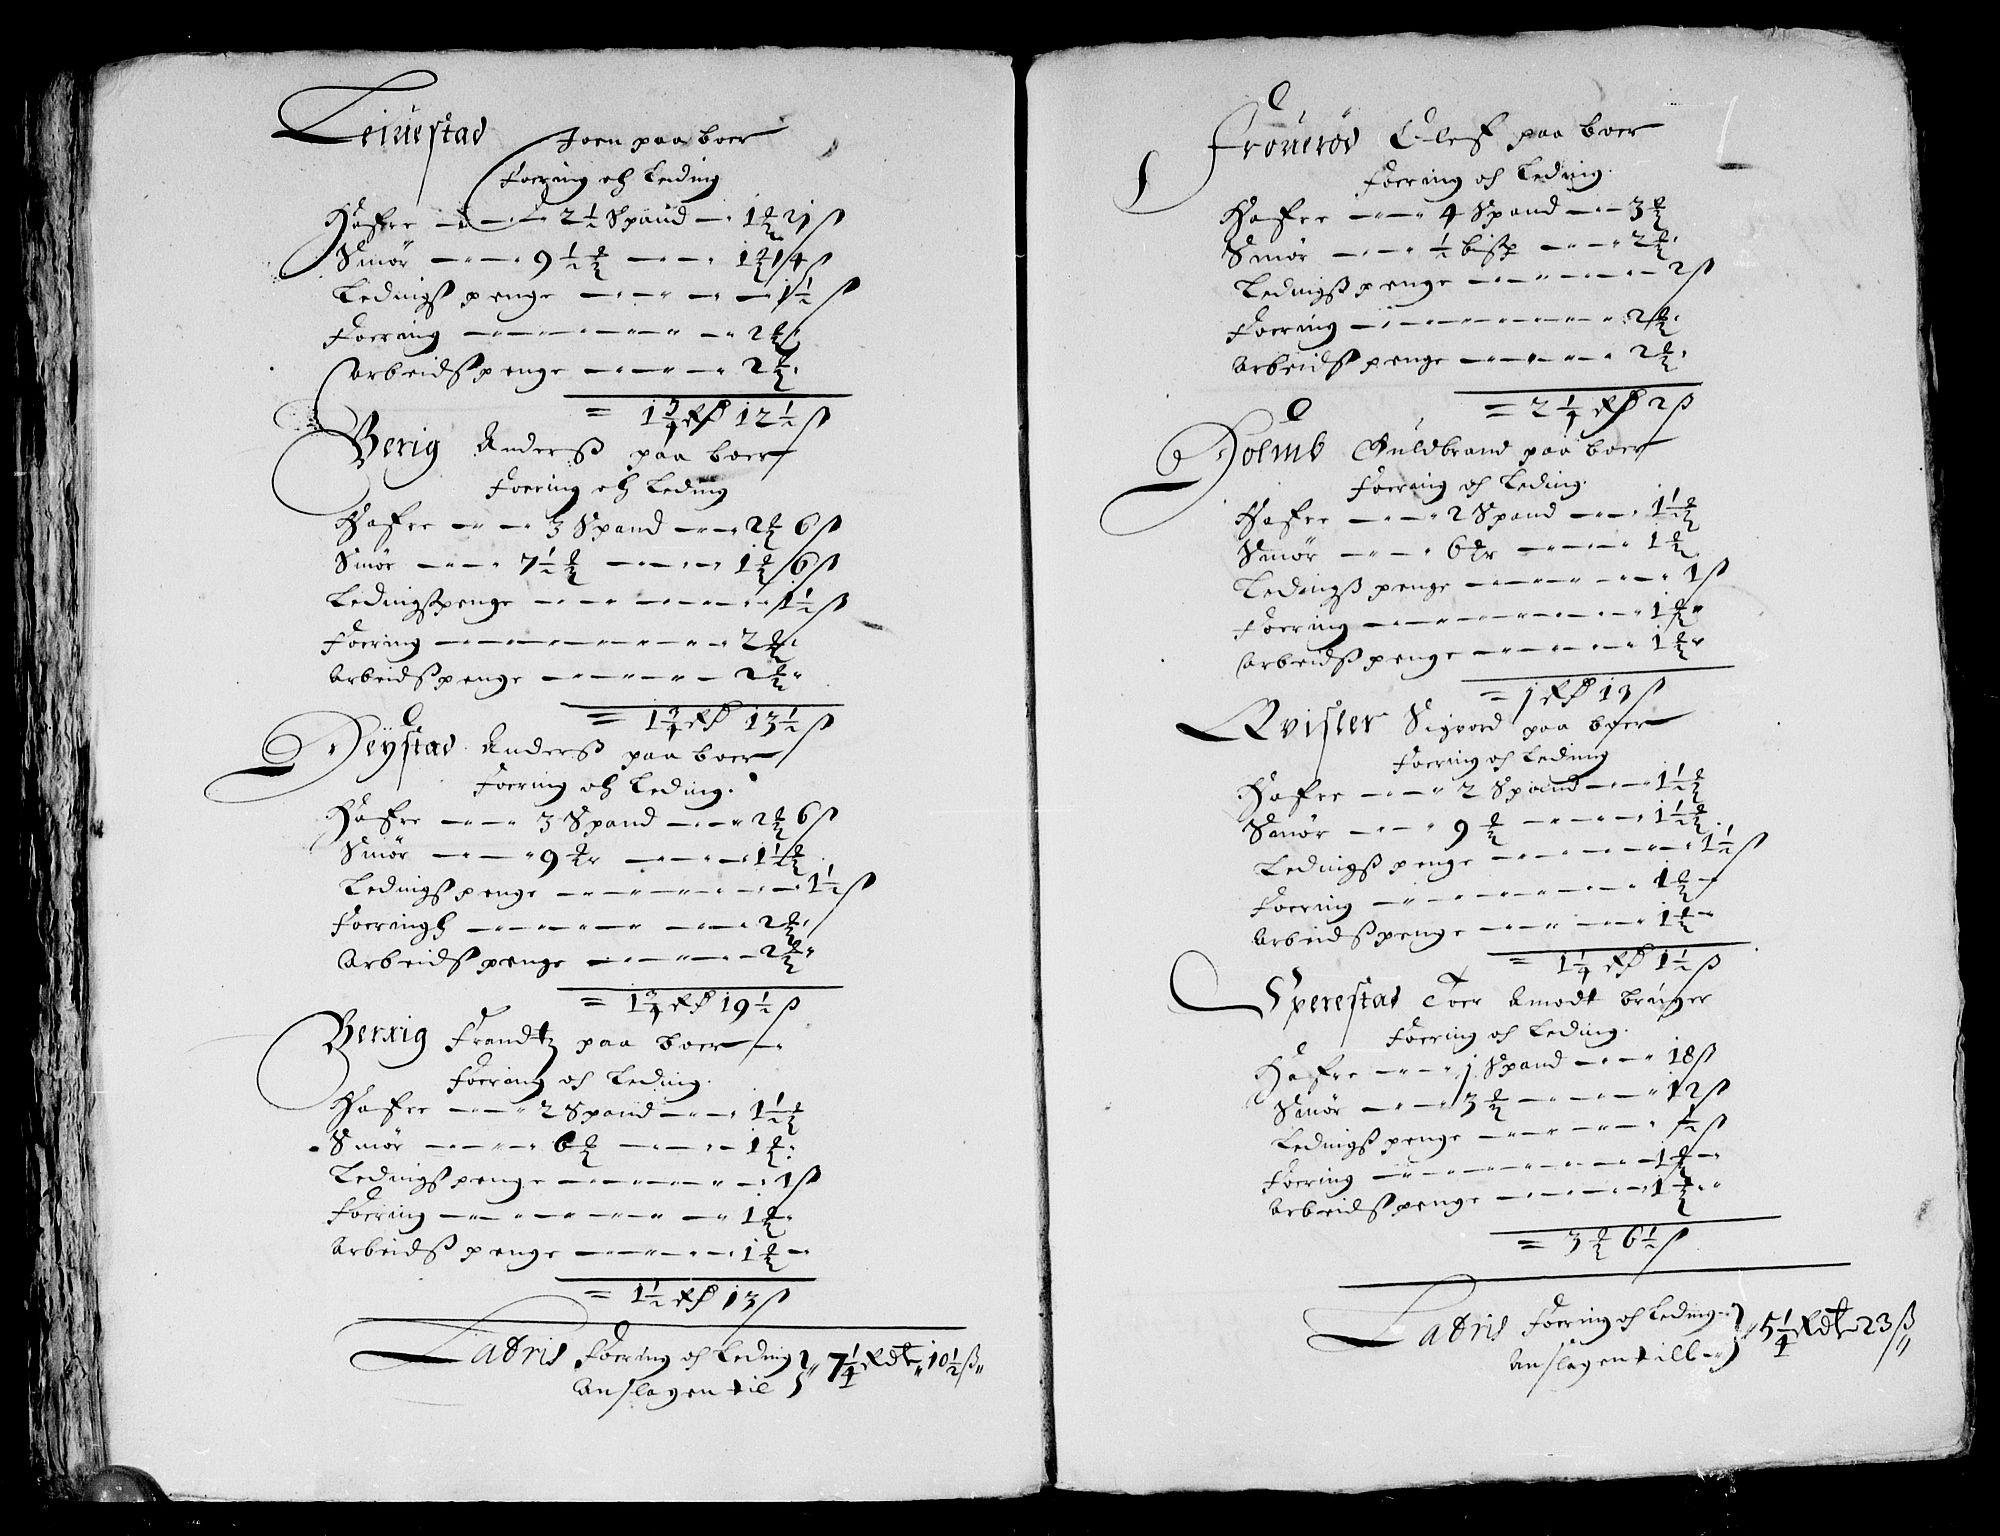 Leiuestad Joen paa boer
Foering och Leding
Hafre — 2½ Spand — 1 ℔ 21 ß
Smør — 9½ ℔ — 1 ℔ 14 ß
Ledingß penge — 1½ ß
Foering — 2 ℔
Arbeidß penge — 2 ℔
= 1¾ Rß 12½ ß
Berig Anderß paa boer
Foering och Leding
Hafre — 3 Spand — 2 ℔ 6 ß
Smør — 7½ ℔ — 1 ℔ 6 ß
Ledingßpenge — 1½ ß
Foering — 2 ℔
Arbeidßpenge — 2 ℔
= 1¾ Rß 13½ ß
Høystad Anderß paa boer
Foering och Leding.
Hafre — 3 Spand — 2 ℔ 6 ß
Smør — 9 ℔r — 1½ ℔
Ledingß penge — 1½ ß
Foeringh — 2 ℔
Arbeidß penge — 2 ℔
= 1¾ Rß 19½ ß
Berrig Frandtz paa boer
Foering oh Leding.
Hafre — 2 Spand — 1½ ℔
Smør — 6 ℔ — 1 ℔
Ledingß penge — 1 ß
Foering — 1 ℔
Arbeidß penge — 1 ℔
= 1½ Rß 13 ß
Latris Foering oh Leding
Anslagen til 7¼ Rdr 10½ ß
Frøuerød Oleff paa boer
Foering oh Leding.
Hafre — 4 Spand — 3 ℔
Smør — ½ bisp — 2 ℔
Ledingß penge — 2 ß
Foering — 2 ℔
Arbeidß penge — 2 ℔
= 2¼ Rß 2 ß
Holmb Guldbrand paa boer
Foering oh Leding.
Hafre — 2 Spand — 1½ ℔
Smør — 6 ℔r — 1 ℔
Ledingß penge — 1 ß
Foering — 1 ℔
Arbeidß penge — 1 ℔
= 1 Rß 13 ß
Qvisler Sigvord paa boer
Foering oh Leding
Hafre — 2 Spand — 1½ ℔
Smør — 9 ℔ — 1½ ℔
Ledingß penge — 1½ ß
Foering — 1 ℔
Arbeidßpenge — 1 ℔
= 1¼ Rß 1½ ß
Sperestad Toer Amodt bruger
Foering oh Leding.
Hafre — 1 Spand — 18 ß
Smør — 3 ℔ — 12 ß
Ledingß penge — ½ ß
Foering — 1 ℔
Arbeidß penge — 1 ℔
= 3 ℔ 6½ ß
Latris Foering oh Leding
Anslagen till 5¼ Rdr 23 ß